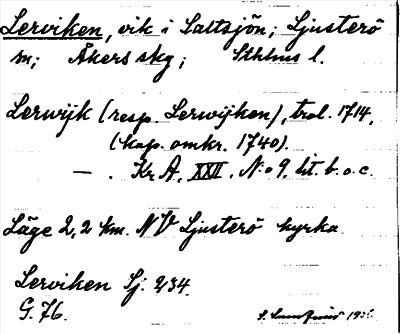 Lerviken, vik i Saltsjön; Ljusterö
sn; Åkers skg; Sthlms l.
Lerwijk (resp. Lerwijken), trol. 1714,
(kop. omkr. 1740).
— . Kr A, XXII, N:o 9, lit. b. o. c.
Läge 2,2 km. NV Ljusterö kyrka
Lerviken Sj. 234.
G. 76.